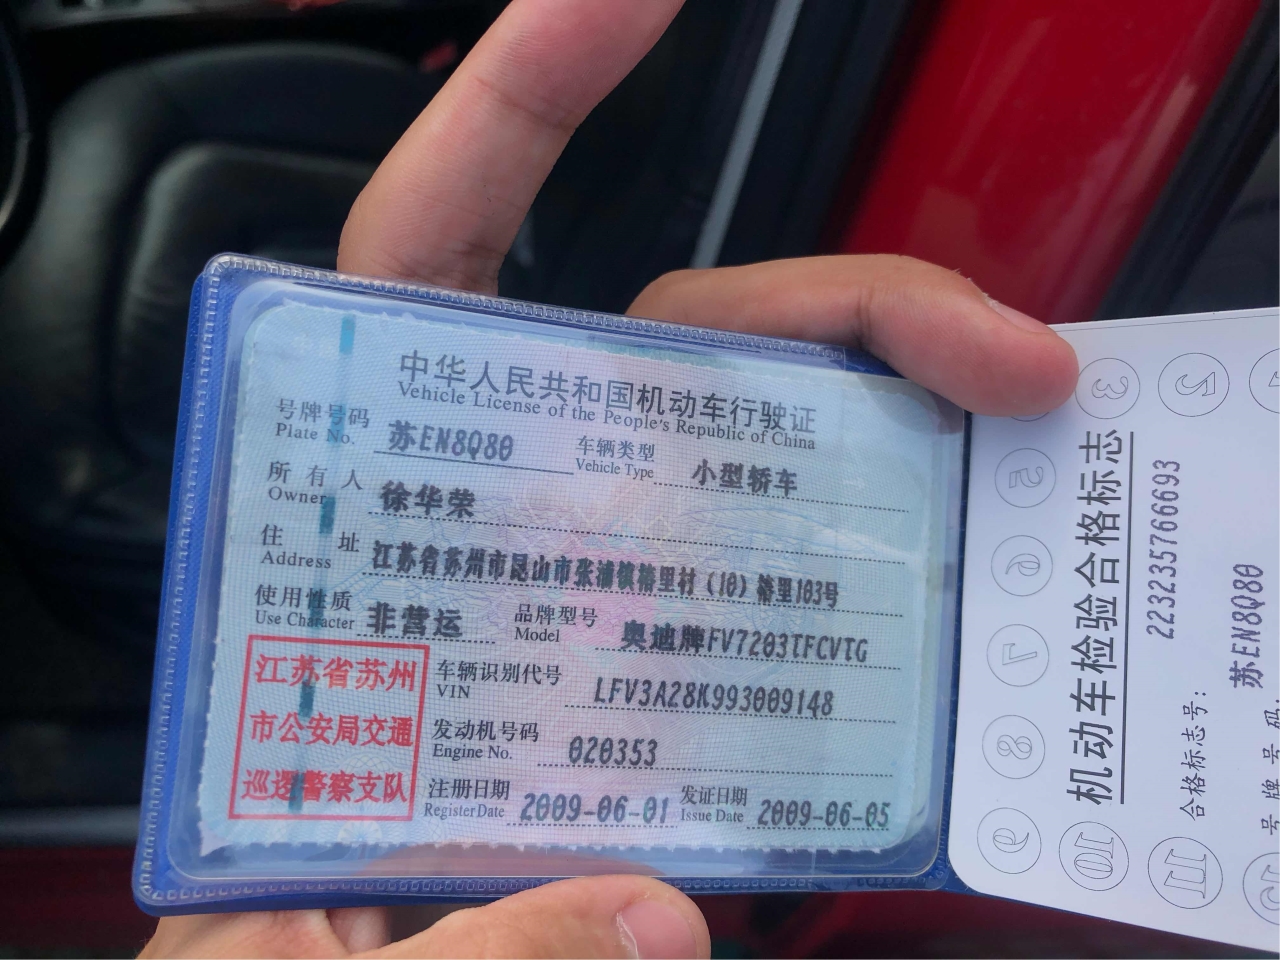 中华人民共和国机动车行驶证
Vehicle License of the People's Republic of China
号牌号码 苏EN8Q80 车辆类型 小型轿车
Plate No. Vehicle Type
所有人 徐华荣
Owner
住址 江苏省苏州市昆山市张浦镇椿里村（10）椿里103号
Address
使用性质 非营运 品牌型号 奥迪牌FV7203TFCVTG
Use Character Model
江苏省苏州
市公安局交通
巡逻警察支队
车辆识别代号 LFV3A28K993009148
VIN
发动机号码 020353
Engine No.
注册日期 2009-06-01 发证日期 2009-06-05
Register Date Issue Date
机动车检验合格标志
合格标志号: 2232357666​93
号牌号码: 苏EN8Q80
3
2
5
6
7
8
9
10
11